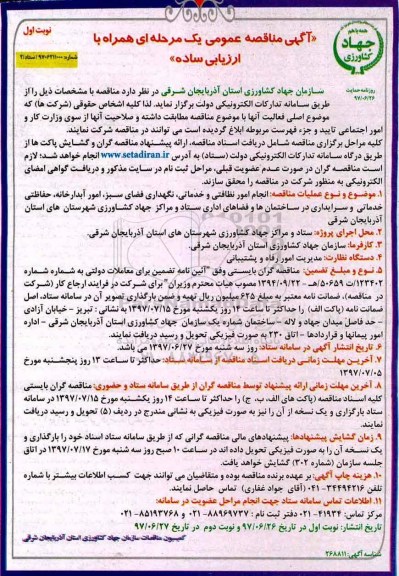 نوبت اول
«آگهی مناقصه عمومی یک مرحله ای همراه با
ارزیابی ساده»
جهاد کشاورزی
روزنامه حمایت
۹۷/۰۶/۲۶
سازمان جهاد کشاورزی استان آذربایجان شرقی در نظر دارد مناقصه با مشخصات ذیل را از
طریق سامانه تدارکات الکترونیکی دولت برگزار نماید. لذا کلیه اشخاص حقوقی (شرکت ها) که
موضوع اصلی فعالیت آنها با موضوع مناقصه مطابقت داشته و صلاحیت آنها از سوی وزارت کار و
امور اجتماعی تایید و جزء فهرست مربوطه ابلاغ گردیده است می توانند در مناقصه شرکت نمایند.
کلیه مراحل برگزاری مناقصه شامل دریافت اسناد مناقصه، ارائه پیشنهاد مناقصه گران و گشایش پاکت ها از
طریق درگاه سامانه تدارکات الکترونیکی دولت (ستاد) به آدرس www.setadiran.ir انجام خواهد شد؛ لازم
است مناقصه گران در صورت عدم عضویت قبلی، مراحل ثبت نام در سایت مذکور و دریافت گواهی امضای
الکترونیکی به منظور شرکت در مناقصه را محقق سازند.
۱. موضوع و نوع عملیات مناقصه: انجام امور نظافتی و خدماتی، نگهداری فضای سبز، امور آبدارخانه، حفاظتی
خدماتی و سرایداری در ساختمان ها و فضاهای اداری ستاد و مراکز جهاد کشاورزی شهرستان های استان
آذربایجان شرقی
۲. محل اجرای پروژه: ستاد و مراکز جهاد کشاورزی شهرستان های استان آذربایجان شرقی.
۳. کارفرما: سازمان جهاد کشاورزی استان آذربایجان شرقی.
۴. دستگاه نظارت: مدیریت امور رفاه و پشتیبانی
۵. نوع و مبلغ تضمین: مناقصه گران بایستی وفق "آئین نامه تضمین برای معاملات دولتی به شماره شماره
۱۲۳۴۰۲/ت ۵۰۶۵۹هـ - ۱۳۹۴/۰۹/۲۲ مصوب هیات محترم وزیران" برای شرکت در فرایند ارجاع کار (شرکت
در مناقصه)، ضمانت نامه معتبر به مبلغ ۶۲۵ میلیون ریال تهیه و ضمن بارگذاری تصویر آن در سامانه ستاد، اصل
ضمانت نامه (پاکت الف) را حداکثر تا ساعت ۱۴ روز یکشنبه مورخ ۱۳۹۷/۰۷/۱۵ به نشانی: تبریز - خیابان آزادی
- حد فاصل میدان جهاد و لاله - ساختمان شماره یک سازمان جهاد کشاورزی استان آذربایجان شرقی - اداره
امور پیمانها و قراردادها - اتاق ۲۳۰ به صورت فیزیکی تحویل و رسید دریافت نمایند.
۶. تاریخ انتشار آگهی در سامانه ستاد: روز سه شنبه مورخ ۱۳۹۷/۰۶/۲۷ می باشد.
۷. آخرین مهلت زمانی دریافت اسناد مناقصه از سامانه ستاد: حداکثر تا ساعت ۱۳ روز پنجشنبه مورخ
۱۳۹۷/۰۷/۰۵
۸. آخرین مهلت زمانی ارائه پیشنهاد توسط مناقصه گران از طریق سامانه ستاد و حضوری: مناقصه گران بایستی
کلیه اسناد مناقصه (پاکت های الف، ب، ج) را حداکثر تا ساعت ۱۴ روز یکشنبه مورخ ۱۳۹۷/۰۷/۱۵ در سامانه
ستاد بارگذاری و یک نسخه از آن را نیز به صورت فیزیکی به نشانی مندرج در ردیف (۵) تحویل و رسید دریافت
نمایند.
۹. زمان گشایش پیشنهادها: پیشنهادهای مالی مناقصه گرانی که از طریق سامانه ستاد اسناد خود را بارگذاری و
یک نسخه آن را به صورت فیزیکی تحویل داده اند در ساعت ۱۰ صبح روز سه شنبه مورخ ۱۳۹۷/۰۷/۱۷ در اتاق
جلسه سازمان (شماره ۳۰۲) گشایش خواهد یافت.
۱۰. هزینه چاپ آگهی: بر عهده برنده مناقصه بوده و متقاضیان می توانند جهت کسب اطلاعات بیشتر با شماره
تلفن ۳۴۴۹۴۲۱۶-۰۴۱ (آقای جواد غفاری) تماس حاصل نمایند.
۱۱. اطلاعات تماس سامانه ستاد جهت انجام مراحل عضویت در سامانه:
مرکز تماس: ۴۱۹۳۴-۰۲۱ دفتر ثبت نام: ۸۸۹۶۹۷۳۷-۰۲۱ و ۸۵۱۹۳۷۶۸-۰۲۱
تاریخ انتشار: نوبت اول در تاریخ ۹۷/۰۶/۲۶ و نوبت دوم در تاریخ ۹۷/۰۶/۲۷
کمیسیون مناقصات سازمان جهاد کشاورزی استان آذربایجان شرقی
شناسه آگهی: ۲۶۸۸۱۱